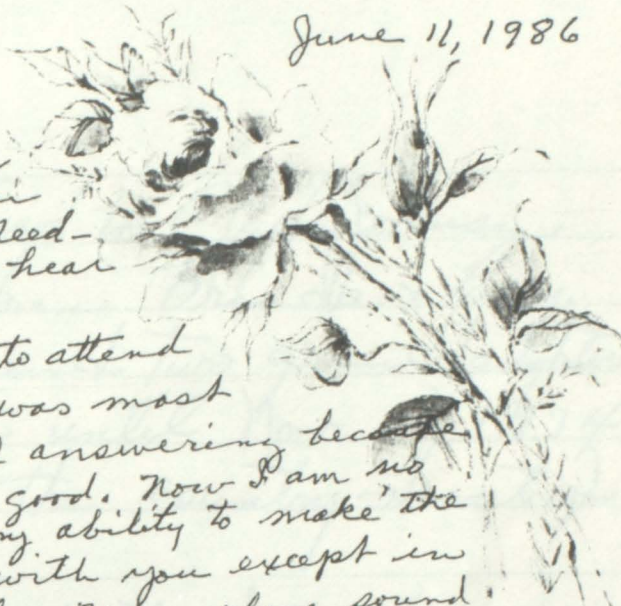 June 11, 1986
hear
to attend
was most
answering because
good. Now I am no
ability to make the
with you except in
sound